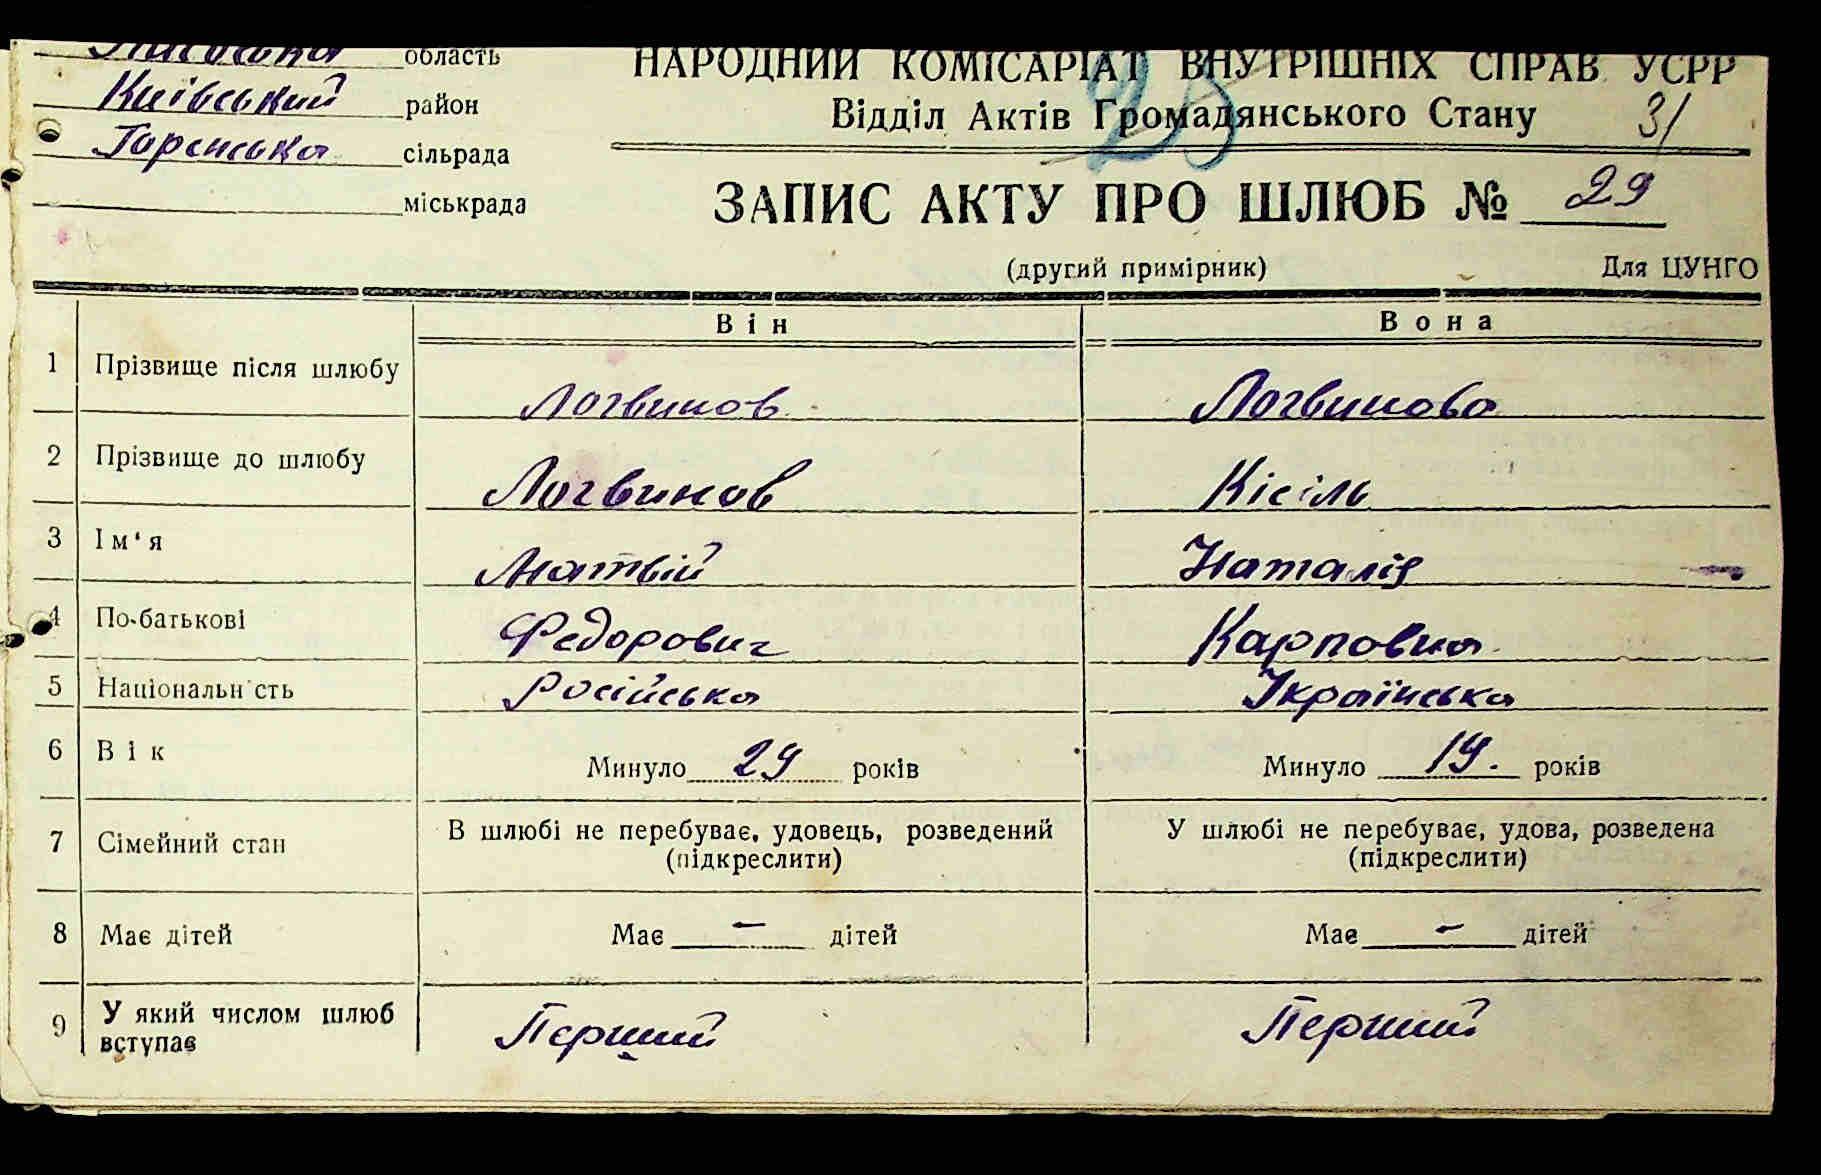 Київська область
Київський район
Горенська сільрада
міськрада
НАРОДНИЙ КОМІСАРІАТ ВНУТРІШНІХ СПРАВ УСРР
Відділ Актів Громадянського Стану
31
23
ЗАПИС АКТУ ПРО ШЛЮБ № 29
(другий примірник) Для ЦУНГО
Він Вона
1 Прізвище після шлюбу Логвинов Логвинова
2 Прізвище до шлюбу Логвинов Кісіль
3 Ім‘я Матвій Наталія
4 По-батькові Федорович Карповна
5 Національність Російська Українська
6 Вік Минуло 29 років Минуло 19. років
7 Сімейний стан В шлюбі не перебуває, удовець, розведений У шлюбі не перебуває, удова, розведена
(підкреслити) (підкреслити)
8 Має дітей Має - дітей Має - дітей
9 У який числом шлюб вступає Перший Перший